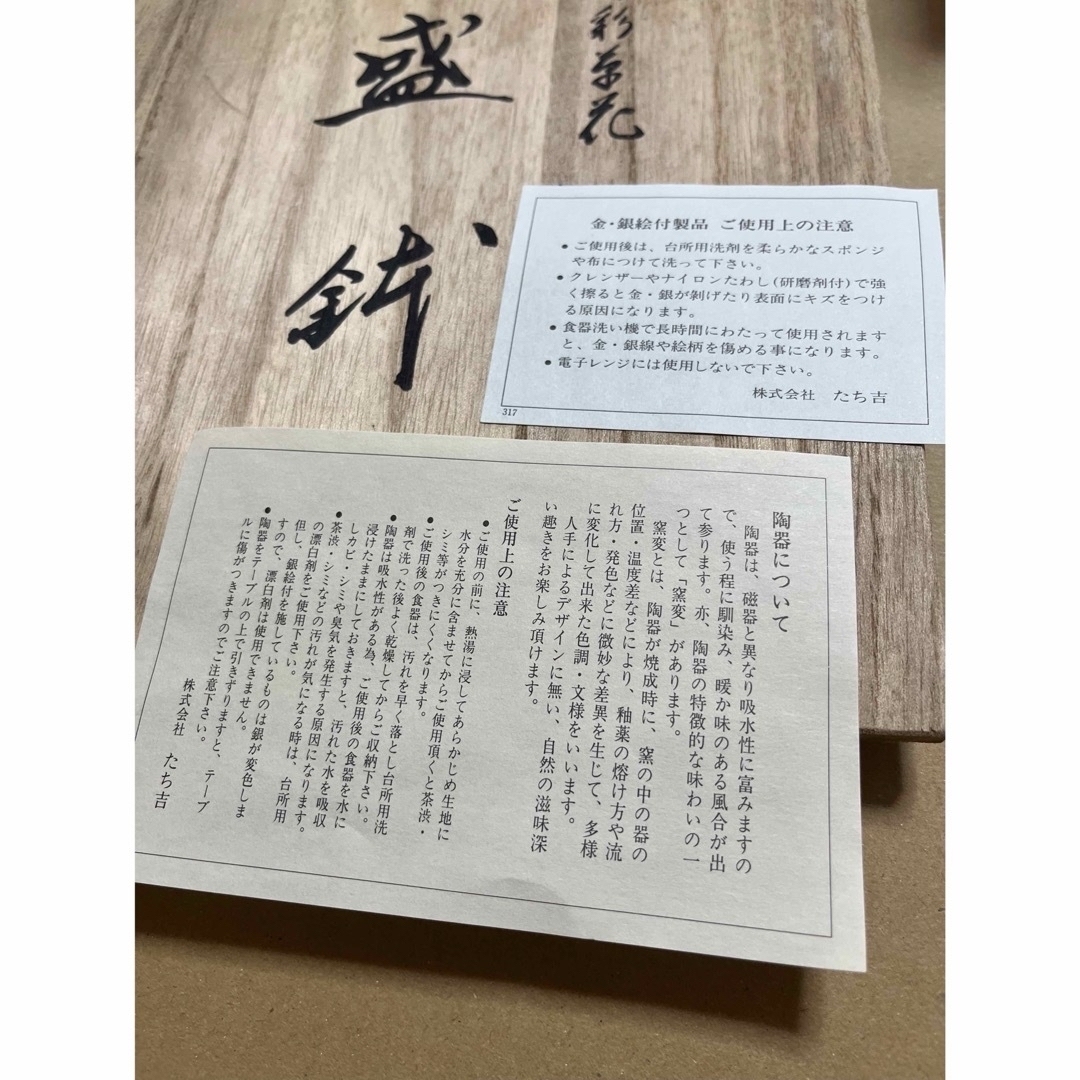 彩草花
盛
鉢
金・銀絵付製品 ご使用上の注意
● ご使用後は、台所用洗剤を柔らかなスポンジ
や布につけて洗って下さい。
● クレンザーやナイロンたわし(研磨剤付)で強
く擦ると金・銀が剝げたり表面にキズをつけ
る原因になります。
● 食器洗い機で長時間にわたって使用されます
と、金・銀線や絵柄を傷める事になります。
● 電子レンジには使用しないで下さい。
株式会社 たち吉
317
陶器について
陶器は、磁器と異なり吸水性に富みますの
で、使う程に馴染み、暖か味のある風合が出
て参ります。亦、陶器の特徴的な味わいの一
つとして「窯変」があります。
窯変とは、陶器が焼成時に、窯の中の器の
位置・温度差などにより、釉薬の熔け方や流
れ方・発色などに微妙な差異を生じて、多様
に変化して出来た色調・文様をいいます。
人手によるデザインに無い、自然の滋味深
い趣きをお楽しみ頂けます。
ご使用上の注意
● ご使用の前に、熱湯に浸してあらかじめ生地に
水分を充分に含ませてからご使用頂くと茶渋・
シミ等がつきにくくなります。
● ご使用後の食器は、汚れを早く落とし台所用洗
剤で洗った後よく乾燥してからご収納下さい。
● 陶器は吸水性がある為、ご使用後の食器を水に
浸けたままにしておきますと、汚れた水を吸収
しカビ・シミや臭気を発生する原因になります。
● 茶渋・シミなどの汚れが気になる時は、台所用
の漂白剤をご使用下さい。
但し、銀絵付を施しているものは銀が変色しま
すので、漂白剤は使用できません。
● 陶器をテーブルの上で引きずりますと、テーブ
ルに傷がつきますのでご注意下さい。
株式会社 たち吉